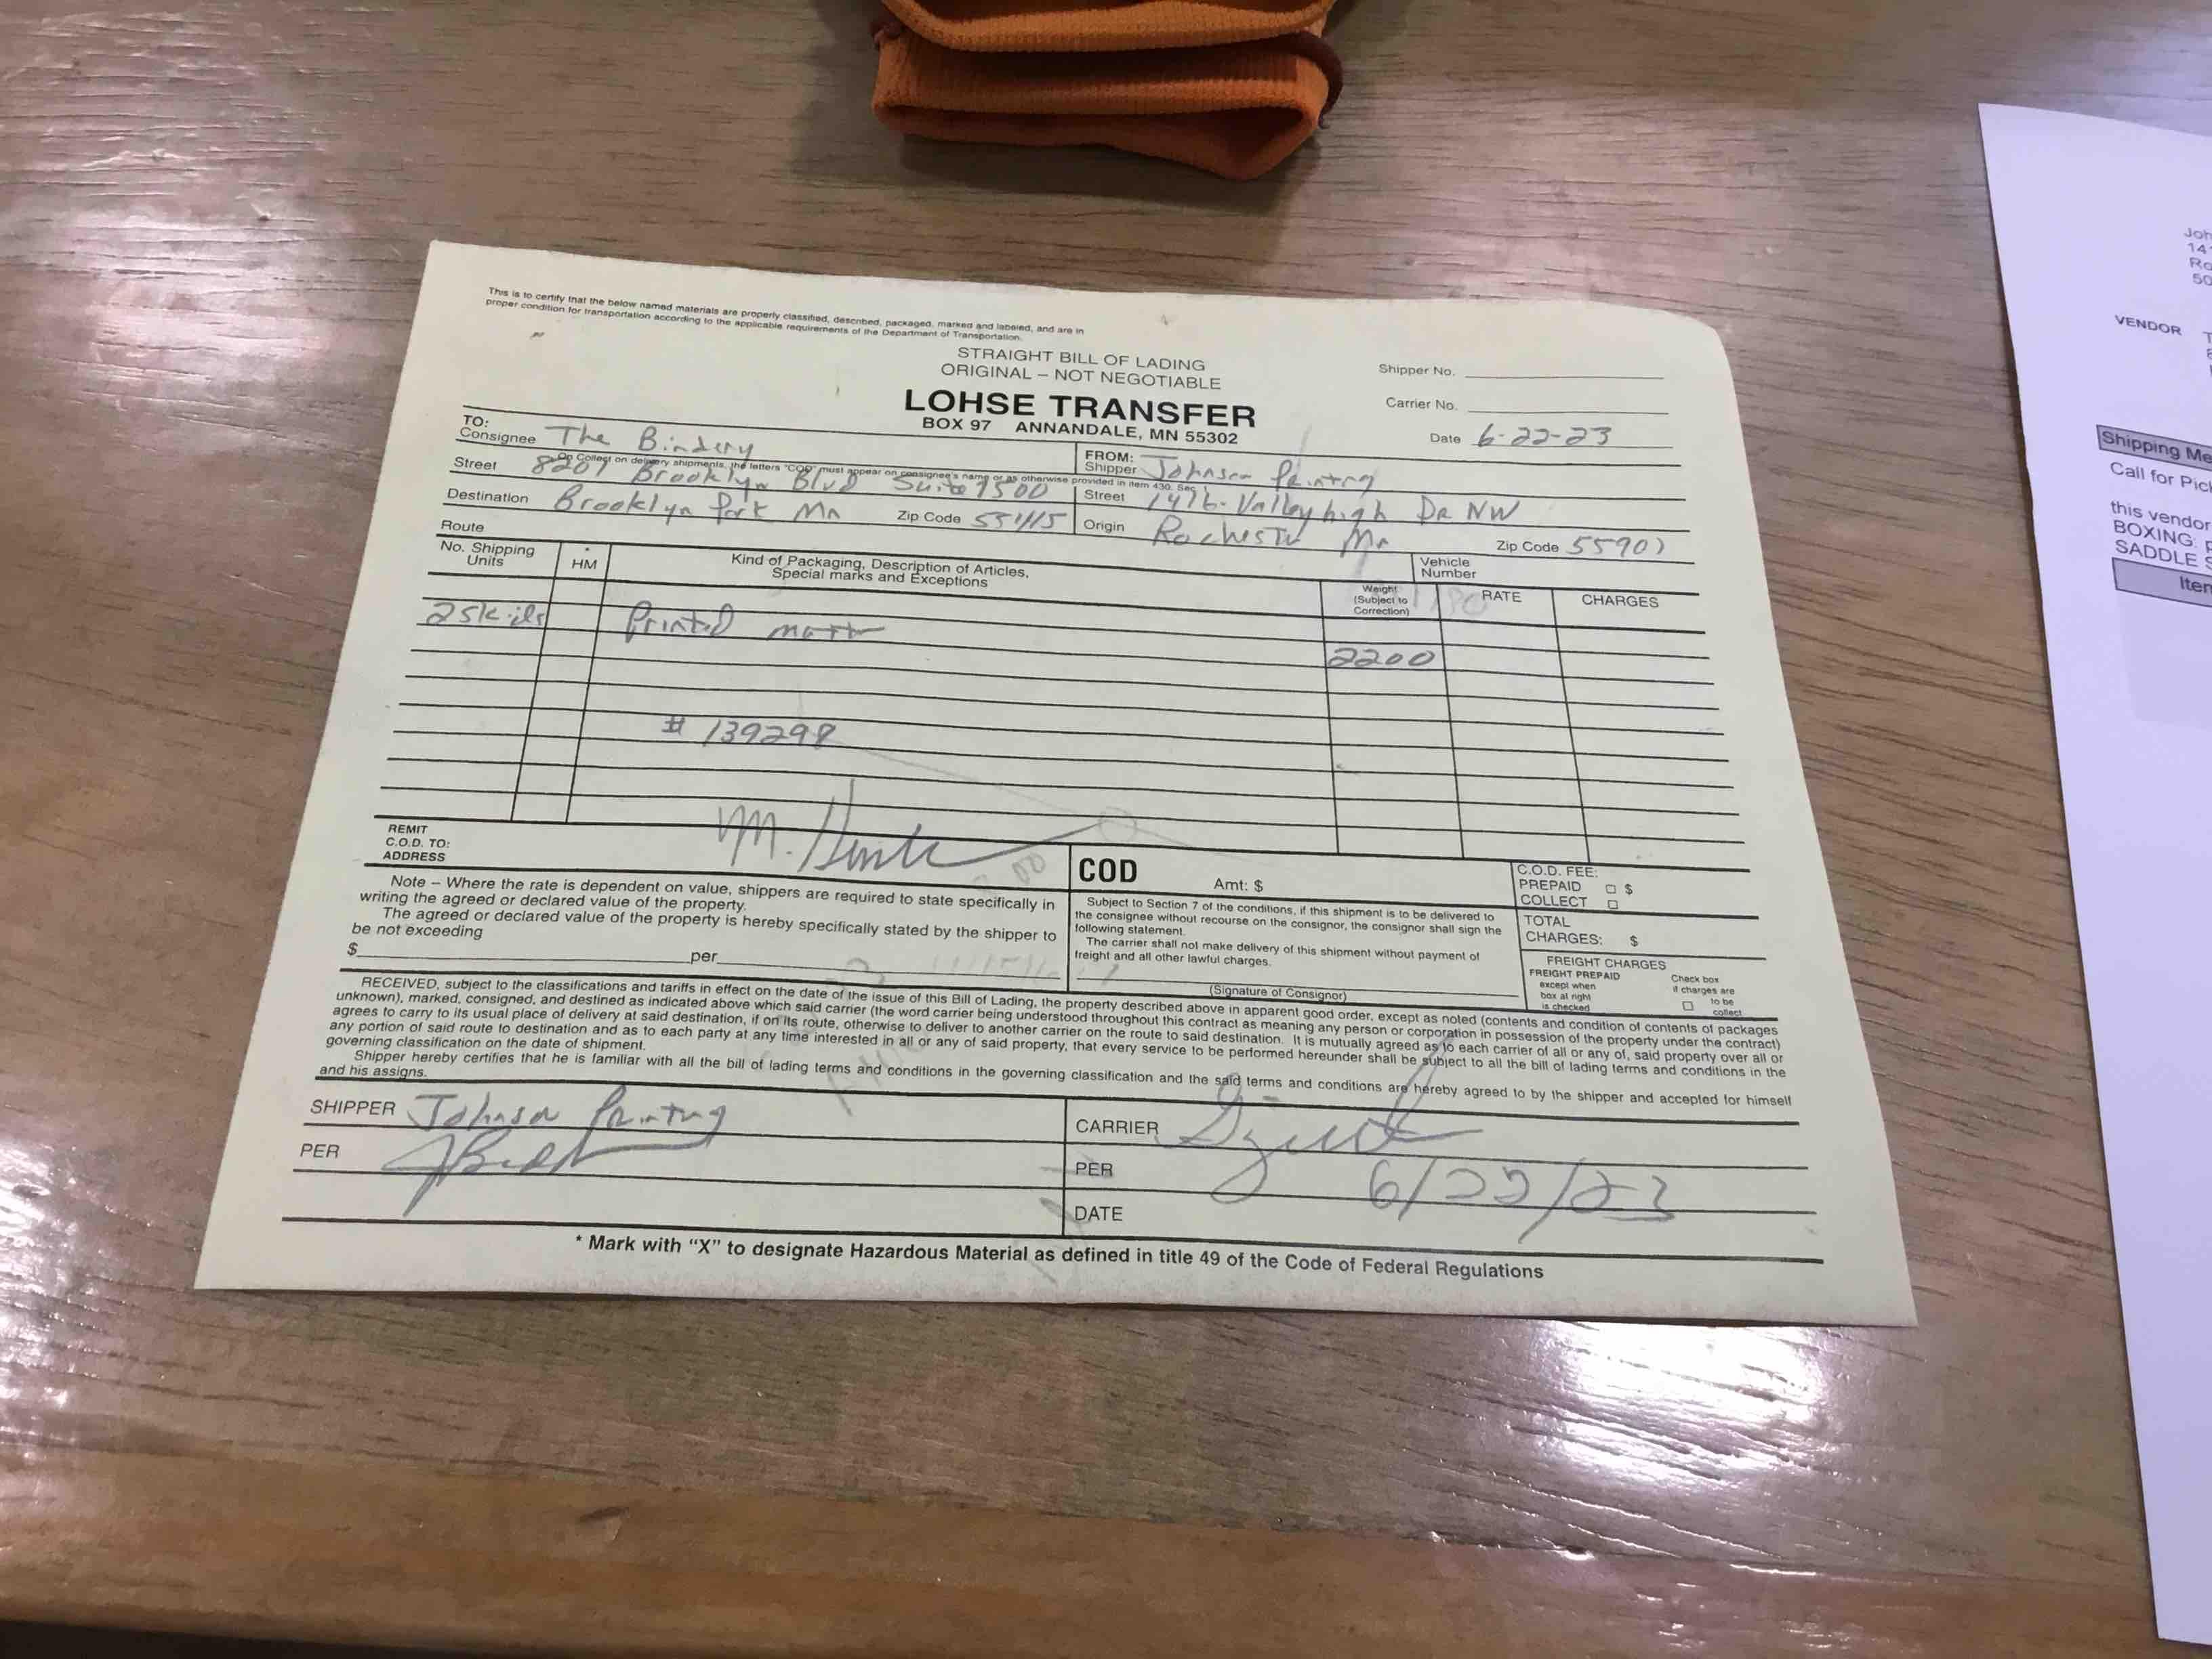 This is to certify that the below named materials are properly classified, described, packaged, marked and labeled, and are in
proper condition for transportation according to the applicable requirements of the Department of Transportation.
STRAIGHT BILL OF LADING
ORIGINAL – NOT NEGOTIABLE
LOHSE TRANSFER
BOX 97 ANNANDALE, MN 55302
Shipper No.
Carrier No.
Date 6-22-23
TO:
Consignee The Bindery
On Collect on delivery shipments, the letters "COD" must appear on consignee's name or as otherwise provided in item 430, Sec. 1
Street 8201 Brooklyn Blvd Suite 1500
Destination Brooklyn Park Mn Zip Code 55445
Route
FROM:
Shipper Johnson Printing
Street 1416 Valleyhigh Dr NW
Origin Rochester Mn Zip Code 55901
Vehicle
Number
No. Shipping
Units
HM
Kind of Packaging, Description of Articles,
Special marks and Exceptions
Weight
(Subject to
Correction)
RATE
CHARGES
2 Skids Printed matter
2200
# 139298
REMIT
C.O.D. TO:
ADDRESS
M.
COD Amt: $
C.O.D. FEE:
PREPAID $
COLLECT
Note – Where the rate is dependent on value, shippers are required to state specifically in
writing the agreed or declared value of the property.
The agreed or declared value of the property is hereby specifically stated by the shipper to
be not exceeding
$ per
Subject to Section 7 of the conditions, if this shipment is to be delivered to
the consignee without recourse on the consignor, the consignor shall sign the
following statement.
The carrier shall not make delivery of this shipment without payment of
freight and all other lawful charges.
(Signature of Consignor)
TOTAL
CHARGES: $
FREIGHT CHARGES
FREIGHT PREPAID
except when
box at right
is checked
Check box
if charges are
to be
collect
RECEIVED, subject to the classifications and tariffs in effect on the date of the issue of this Bill of Lading, the property described above in apparent good order, except as noted (contents and condition of contents of packages
unknown), marked, consigned, and destined as indicated above which said carrier (the word carrier being understood throughout this contract as meaning any person or corporation in possession of the property under the contract)
agrees to carry to its usual place of delivery at said destination, if on its route, otherwise to deliver to another carrier on the route to said destination. It is mutually agreed as to each carrier of all or any of, said property over all or
any portion of said route to destination and as to each party at any time interested in all or any of said property, that every service to be performed hereunder shall be subject to all the bill of lading terms and conditions in the
governing classification on the date of shipment.
Shipper hereby certifies that he is familiar with all the bill of lading terms and conditions in the governing classification and the said terms and conditions are hereby agreed to by the shipper and accepted for himself
and his assigns.
SHIPPER Johnson Printing
PER
CARRIER
PER
DATE 6/22/23
* Mark with “X” to designate Hazardous Material as defined in title 49 of the Code of Federal Regulations
VENDOR
Shipping Me
Call for Pic
this vendor
BOXING:
SADDLE S
Iten